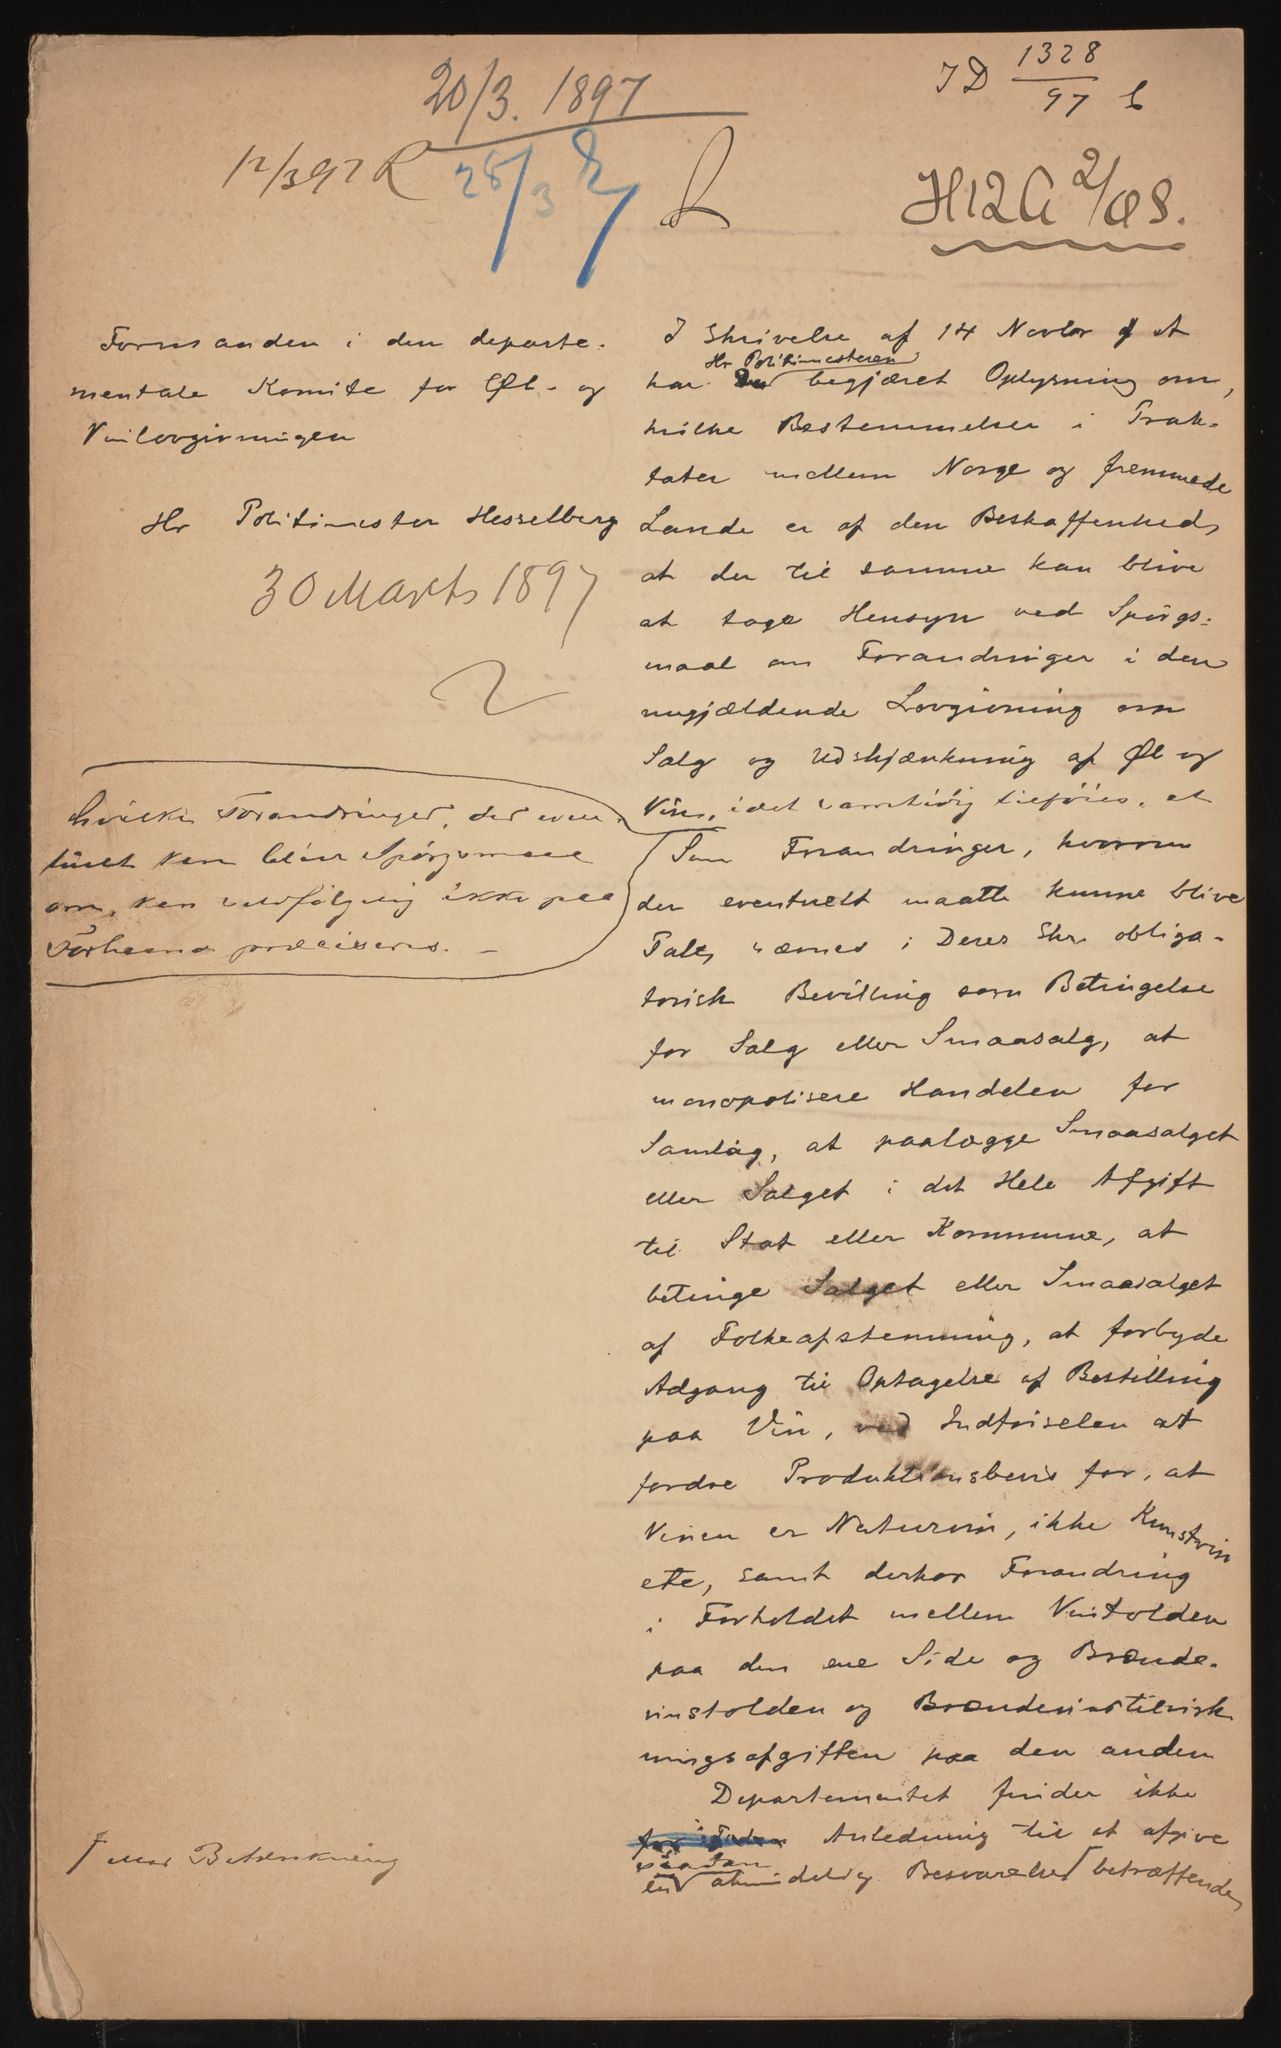 20/3. 1897
J D 1328/97 L
12/3 97 R
28/3
H12A 2/08.
Formanden i den departe-
mentale Komite for Øl- og
Vinlovgivningen
Hr Politimester Hesselberg
30 Marts 1897
hvilke Forandringer, der even-
tuelt kan blive Spørgsmaal
om, kan selvfølgelig ikke paa
Forhaand præciseres. –
eller Betænkning
I Skrivelse af 14 Novbr f A
Hr Politimesteren
har begjæret Oplysning om,
hvilke Bestemmelser i Trak-
tater mellem Norge og fremmede
Lande er af den Beskaffenhed,
at der til samme kan blive
at tage Hensyn ved Spørgs-
maal om Forandringer i den
nugjældende Lovgivning om
Salg og Udskjænkning af Øl og
Vin, idet samtidig tilføies, at
Som Forandringer, hvorom
der eventuelt maatte kunne blive
Tale, nævnes i Deres Skr obliga-
torisk Bevilling som Betingelse
for Salg eller Smaasalg, at
monopolisere Handelen for
Samlag, at paalægge Smaasalget
eller Salget i det Hele Afgift
til Stat eller Kommune, at
betinge Salget eller Smaasalget
af Folkeafstemning, at forbyde
Adgang til Optagelse af Bestilling
paa Vin, ved Indførselen at
fordre Produktionsbevis for, at
Vinen er Naturvin, ikke Kunstvin
etc, samt derhos Forandring
i Forholdet mellem Vintolden
paa den ene Side og Brænde-
vinstolden og Brændevinstilvirk
ningsafgiften paa den anden
Departementet finder ikke
Anledning til at afgive
saadan
en almindelig Besvarelse betræffende,